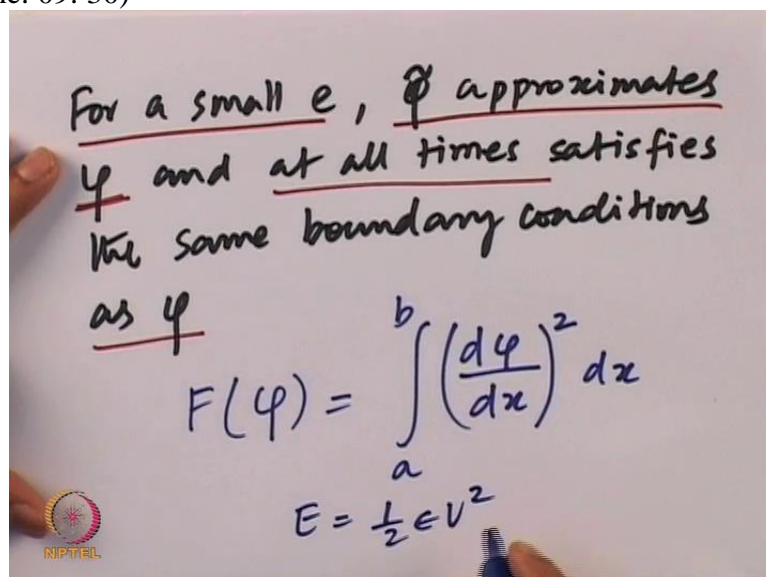 For a small e, φ̃ approximates
φ and at all times satisfies
the same boundary conditions
as φ
F(φ) = ∫ₐᵇ (dφ/dx)² dx
E = ½ ϵ V²
NPTEL